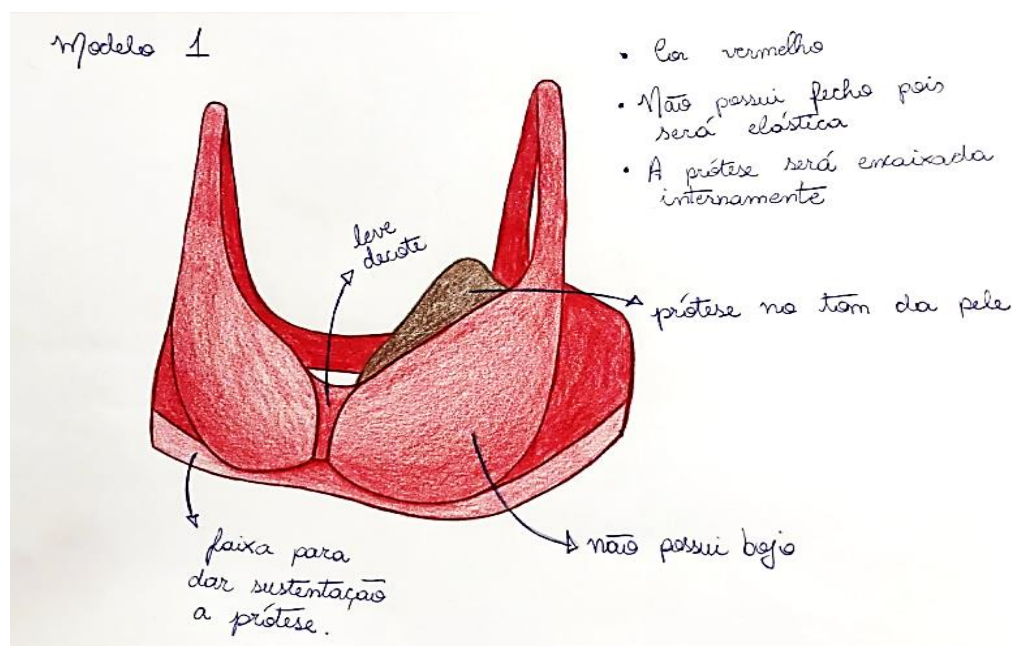 Modelo 1
• Cor vermelho
• Não possui fecho pois
será elástica
• A prótese será encaixada
internamente
leve
decote
prótese no tom da pele
não possui bojo
faixa para
dar sustentação
a prótese.